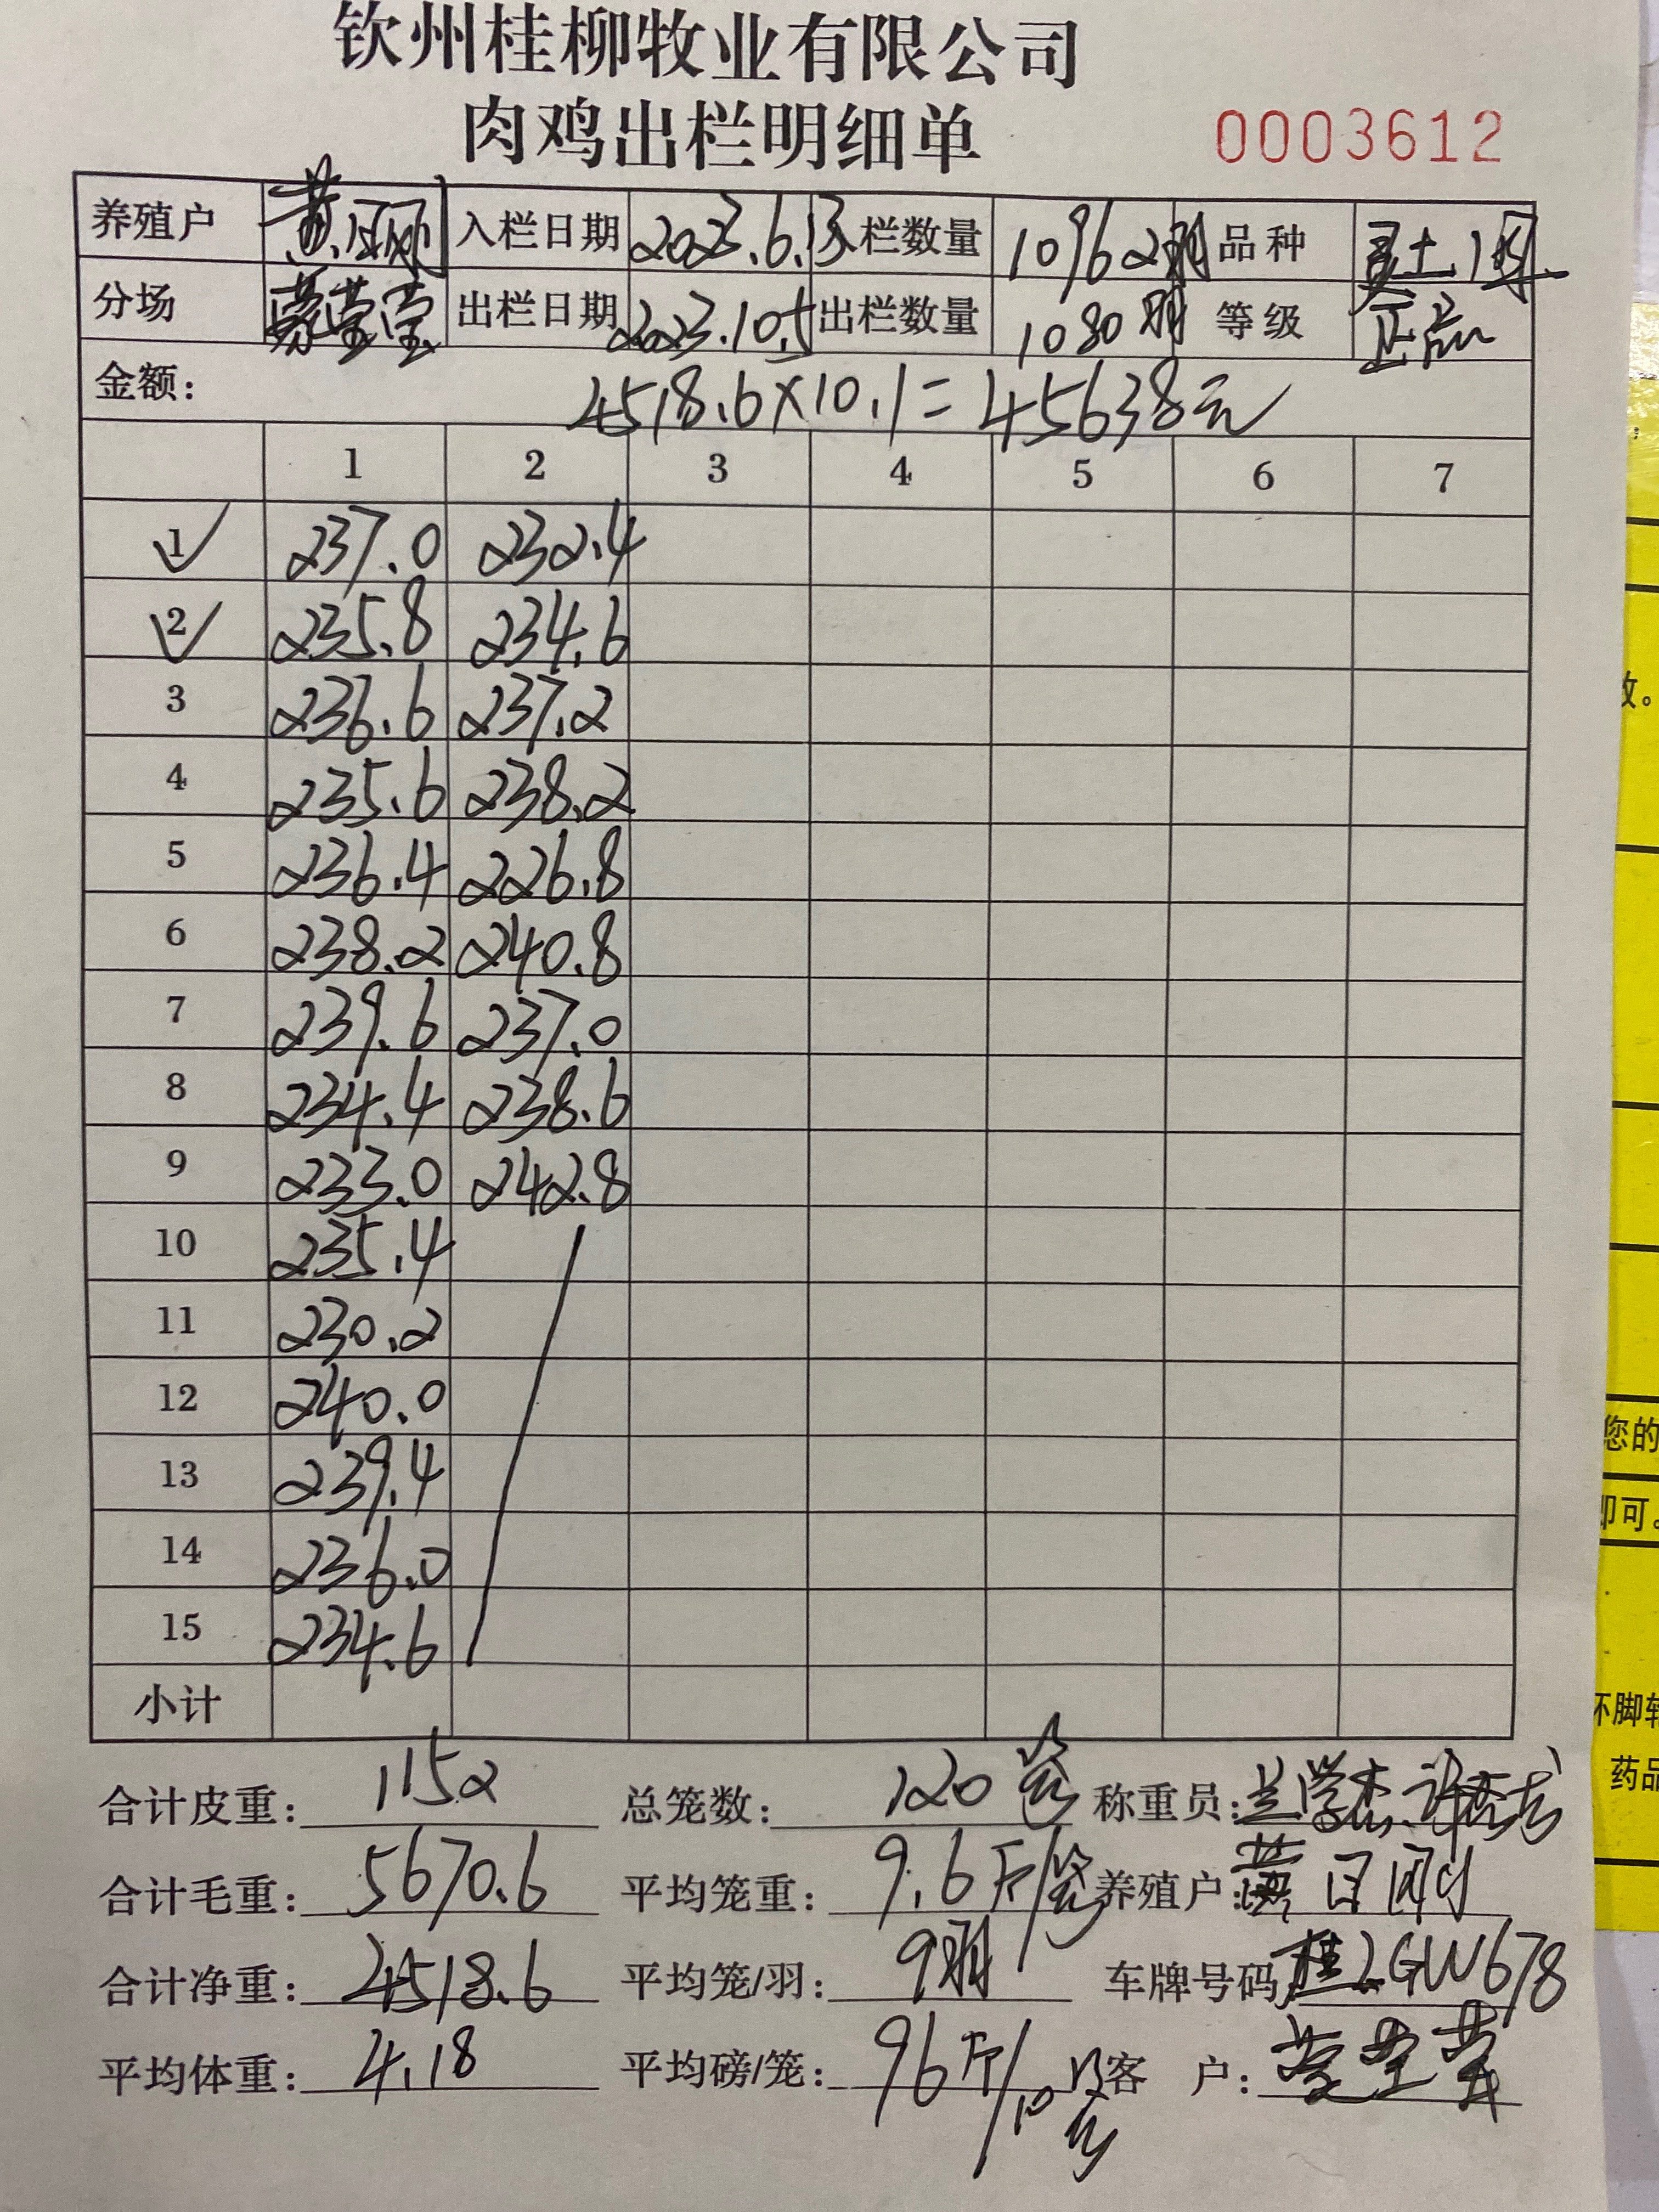 钦州桂柳牧业有限公司
肉鸡出栏明细单 0003612
养殖户 黄日刚 入栏日期 2023.6.13 入栏数量 10962羽 品种
分场 出栏日期 2023.10.5 出栏数量 1080羽 等级 正品
金额: 4518.6×10.1=45638元
1 2 3 4 5 6 7
1 237.0 232.4
2 235.8 234.6
3 236.6 237.2
4 235.6 238.2
5 236.4 226.8
6 238.2 240.8
7 239.6 237.0
8 234.4 238.6
9 233.0 242.8
10 235.4
11 230.2
12 240.0
13 239.4
14 236.0
15 234.6
小计
合计皮重: 1152 总笼数: 120笼 称重员:
合计毛重: 5670.6 平均笼重: 9.6斤/笼 养殖户: 黄日刚
合计净重: 4518.6 平均笼/羽: 9羽 车牌号码: 桂LGW678
平均体重: 4.18 平均磅/笼: 96斤/10笼 客户:
效。
您的
即可。
坏脚轮
药品